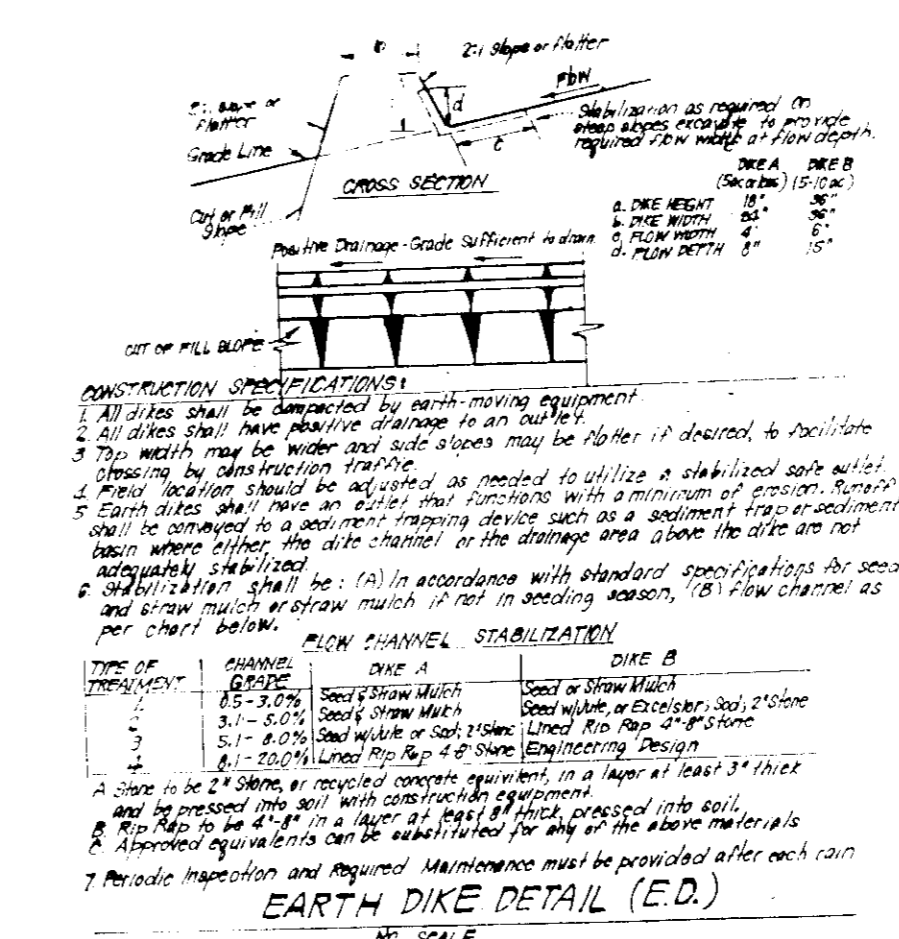 b
2:1 Slope or flatter
Flow
d
2:1 slope or
Flatter
Stabilization as required on
steep slopes excavate to provide
required flow width at flow depth.
Grade Line
c
CROSS SECTION
DIKE A DIKE B
(5-10 ac)
a. DIKE HEIGHT 18" 36"
b. DIKE WIDTH 36"
c. FLOW WIDTH 4' 6'
d. FLOW DEPTH 8" 15"
Cut or Fill
Slope
Positive Drainage-Grade Sufficient to drain
CUT OF FILL SLOPE
CONSTRUCTION SPECIFICATIONS:
1. All dikes shall be compacted by earth-moving equipment.
2. All dikes shall have positive drainage to an outlet.
3 Top width may be wider and side slopes may be flatter if desired, to facilitate
crossing by construction traffic.
4. Field location should be adjusted as needed to utilize a stabilized safe outlet.
5 Earth dikes shall have an outlet that functions with a minimum of erosion. Runoff
shall be conveyed to a sediment trapping device such as a sediment trap or sediment
basin where either, the dike channel or the drainage area above the dike are not
adequately stabilized.
6. Stabilization shall be: (A) In accordance with standard specifications for seed
and straw mulch or straw mulch if not in seeding season, (B) flow channel as
per chart below.
FLOW CHANNEL STABILIZATION
TYPE OF CHANNEL DIKE A DIKE B
TREATMENT GRADE
1 0.5-3.0% Seed & Straw Mulch Seed or Straw Mulch
2 3.1-5.0% Seed & Straw Mulch Seed w/Jute, or Excelsior; Sod; 2" Stone
3 5.1-8.0% Seed w/Jute or Sod; 2" Stone Lined Rip Rap 4"-8" Stone
4 8.1-20.0% Lined Rip Rap 4-8" Stone Engineering Design
A Stone to be 2" Stone, or recycled concrete equivilent, in a layer at least 3" thick
and be pressed into soil with construction equipment.
B. Rip Rap to be 4"-8" in a layer at least 8" thick, pressed into soil.
C. Approved equivalents can be substituted for any of the above materials
7. Periodic Inspection and Required Maintenance must be provided after each rain
EARTH DIKE DETAIL (E.D.)
NO SCALE